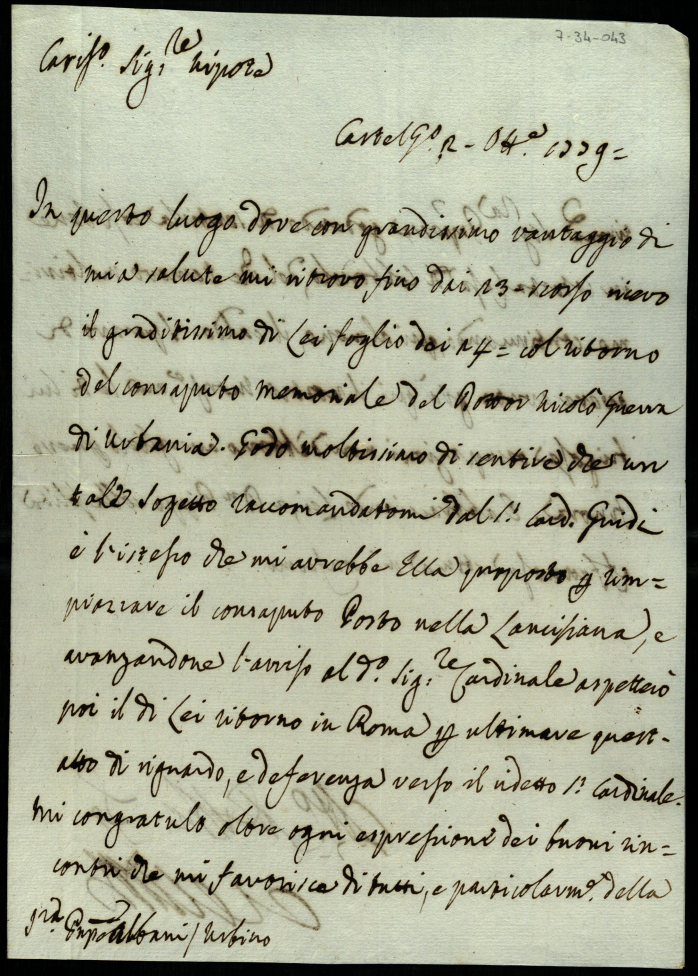 7-34-043
Cariss.o Sig.re Nipote
Castel G.o 2 - Ott.e 1779 =
In questo luogo dove con grandissimo vantaggio di
mia salute mi ritrovo fino dai 13 = scorso ricevo
il graditissimo di Lei foglio dei 14 = col ritorno
del consaputo memoriale del Dottor Nicolò Guerra
di Urbania. Godo moltissimo di sentire che un
tale Sogetto raccomandatomi dal S.r Card. Guidi
è l'istesso che mi avrebbe Ella proposto p rim=
piazzare il consaputo Posto nella Lancisiana, e
avanzandone l'avviso al d.o Sig.re Cardinale aspetterò
poi il di Lei ritorno in Roma p ultimare quest-
atto di riguardo, e deferenza verso il ridetto S.r Cardinale.
Mi congratulo oltre ogni espressione dei buoni rin=
contri che mi favorisce di tutti, e particolarm.e della
Albani / Urbino